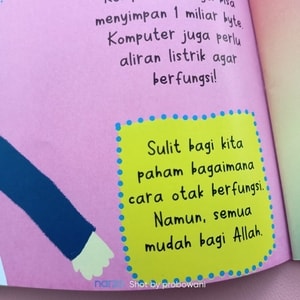 menyimpan 1 miliar byte.
Komputer juga perlu
aliran listrik agar
berfungsi!
Sulit bagi kita
paham bagaimana
cara otak berfungsi.
Namun, semua
mudah bagi Allah.
Shot by probowani